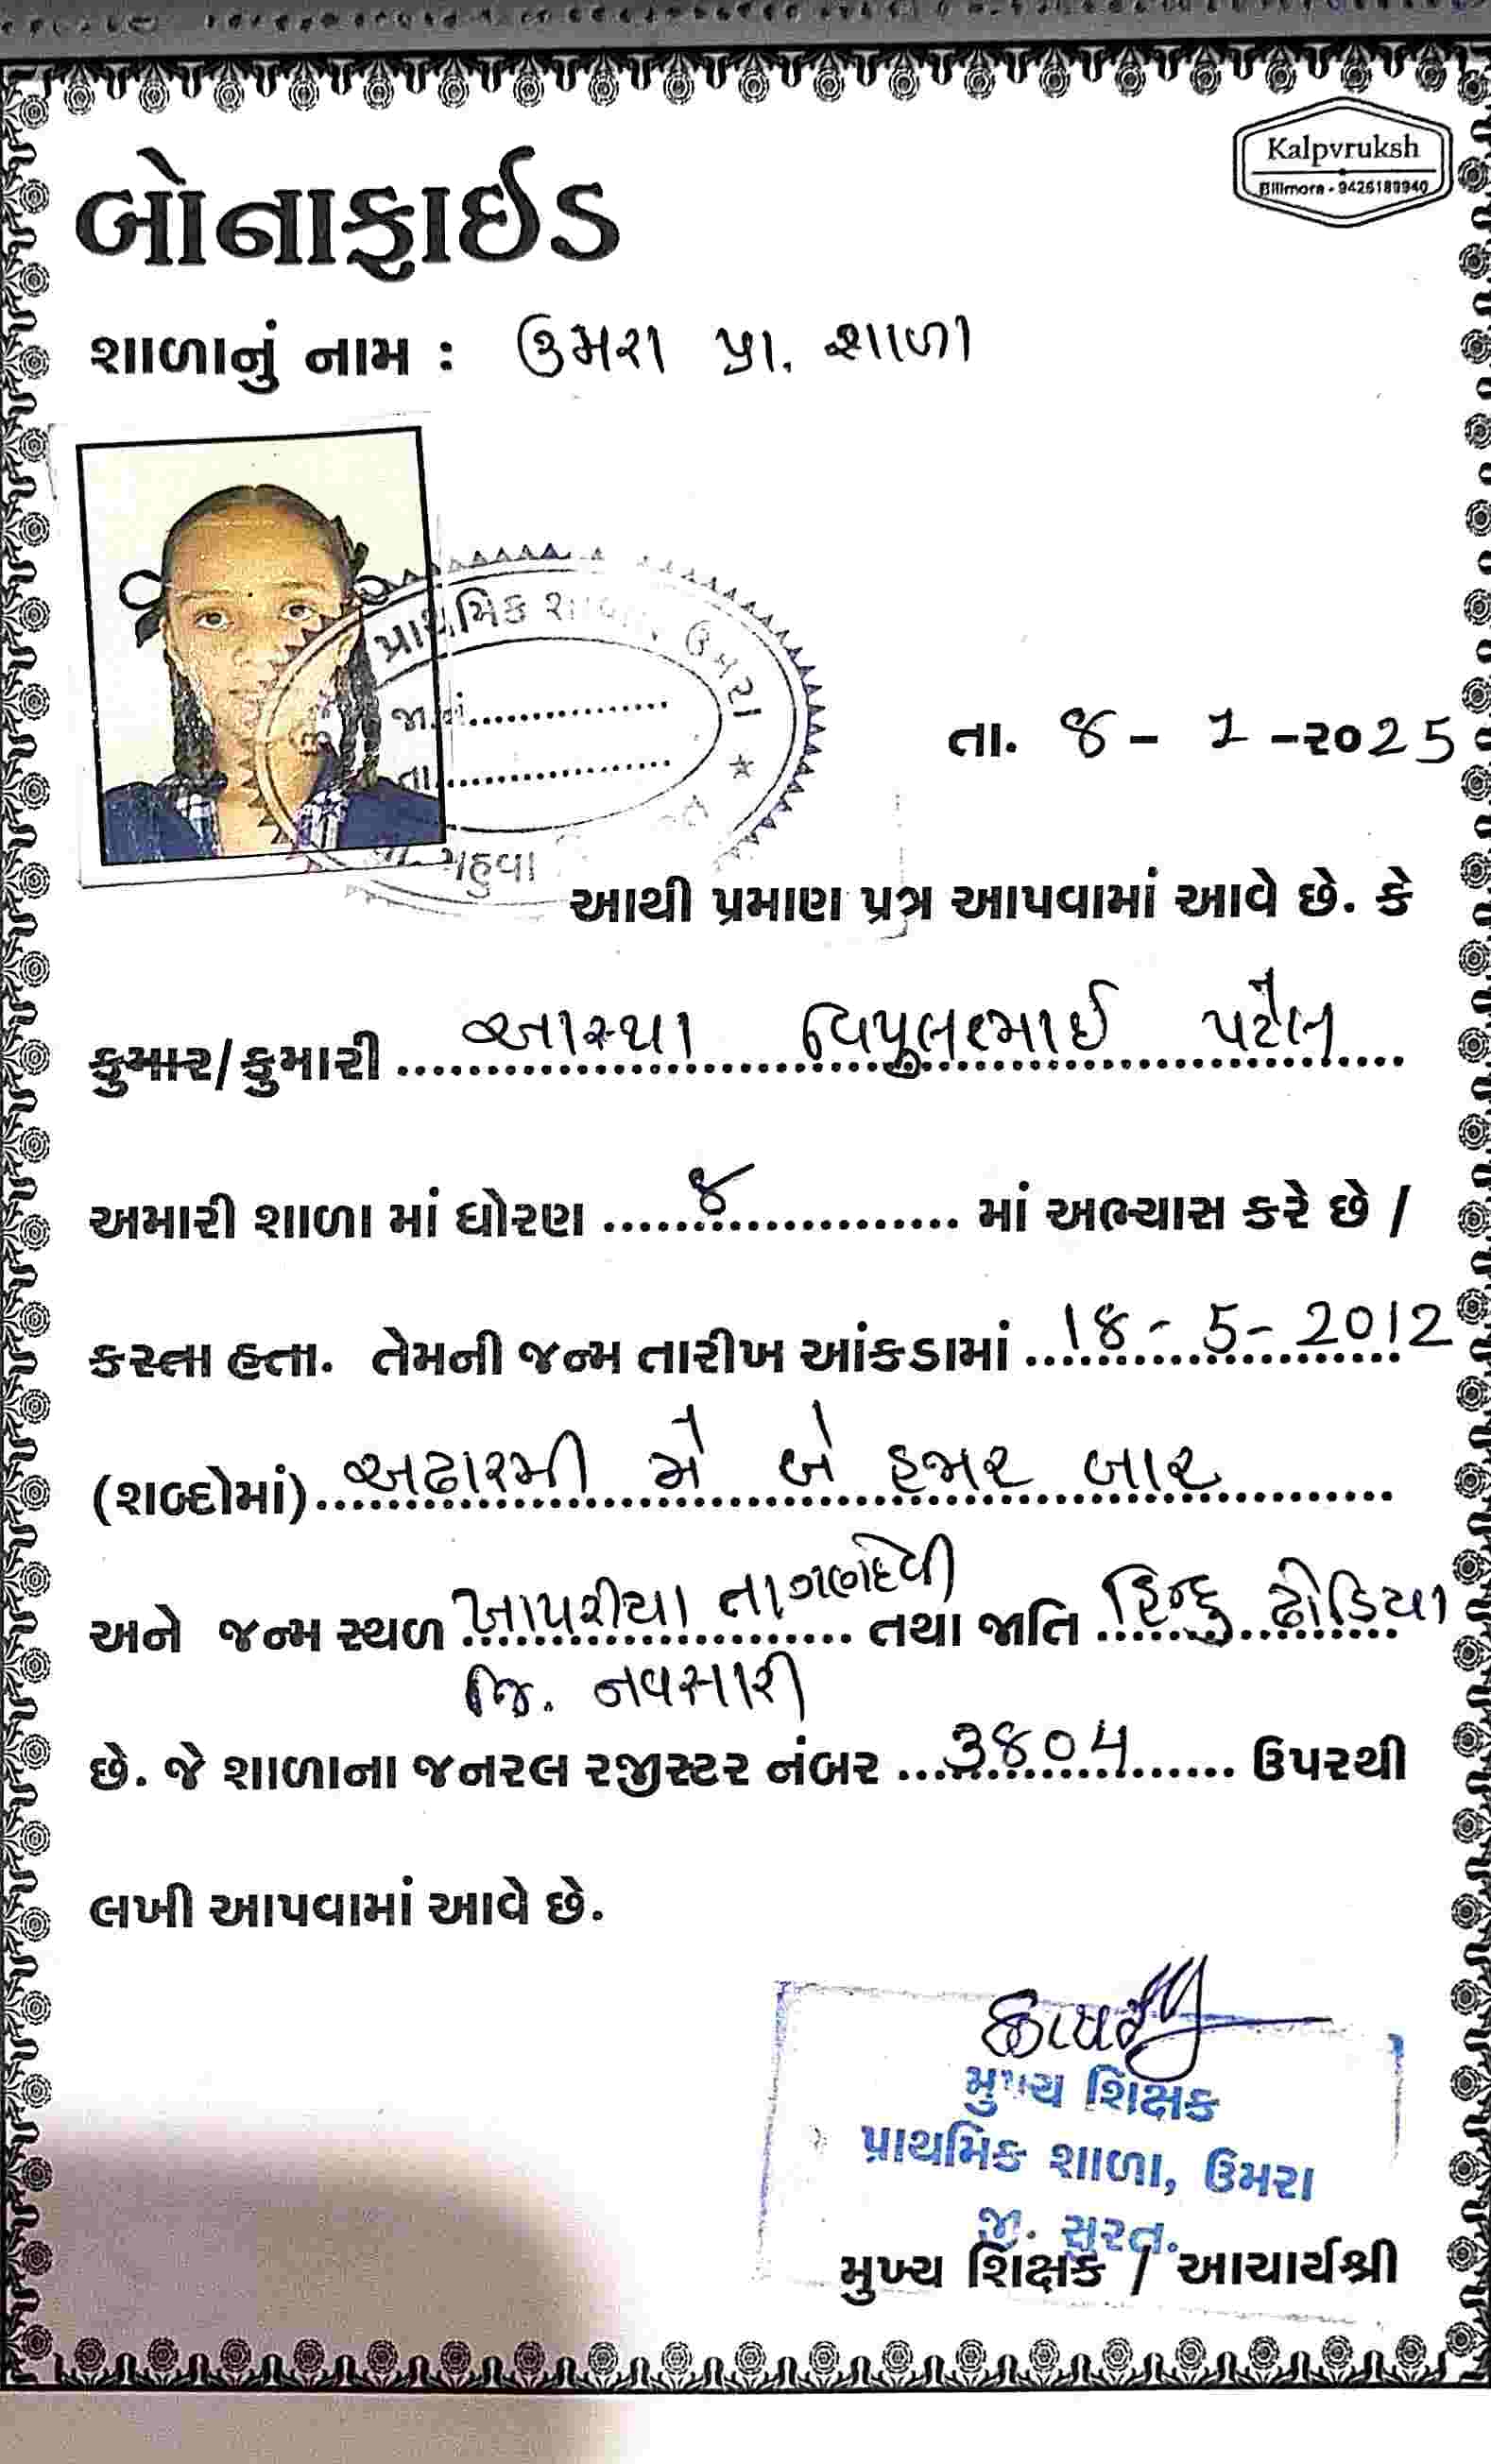 Kalpvruksh
Billimora - 9426189940
બોનાફાઈડ
શાળાનું નામ : ઉમરા પ્રા. શાળા
પ્રાથમિક શાળા, ઉમરા
જા.નં.
તા.
મહુવા
તા. ૪ - 1 -૨૦25
આથી પ્રમાણ પત્ર આપવામાં આવે છે. કે
કુમાર/કુમારી આસ્થા વિપુલભાઈ પટેલ
અમારી શાળા માં ધોરણ ૪ માં અભ્યાસ કરે છે /
કરતા હતા. તેમની જન્મ તારીખ આંકડામાં 1૪ - 5 - 2012
(શબ્દોમાં) અઢારમી મે બે હજાર બાર
અને જન્મ સ્થળ ખાપરીયા તા ગણદેવી તથા જાતિ હિન્દુ ઢોડિયા
જિ. નવસારી
છે. જે શાળાના જનરલ રજીસ્ટર નંબર 3૪0૫ ઉપરથી
લખી આપવામાં આવે છે.
મુખ્ય શિક્ષક
પ્રાથમિક શાળા, ઉમરા
જી. સુરત.
મુખ્ય શિક્ષક / આચાર્યશ્રી